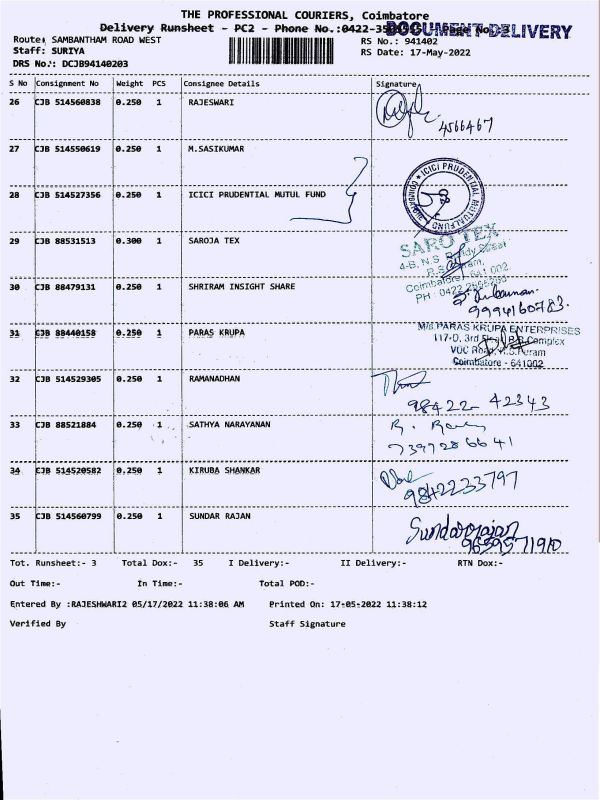 THE PROFESSIONAL COURIERS, Coimbatore
Delivery Runsheet - PC2 - Phone No.:0422-35
DOCUMENT DELIVERY
Route: SAMBANTHAM ROAD WEST
RS No.: 941402
Staff: SURIYA
RS Date: 17-May-2022
DRS No.: DCJB94140203
S No Consignment No Weight PCS Consignee Details Signature
26 CJB 514560838 0.250 1 RAJESWARI
4566467
27 CJB 514550619 0.250 1 M.SASIKUMAR
28 CJB 514527356 0.250 1 ICICI PRUDENTIAL MUTUL FUND
ICICI PRUDENTIAL MUTUAL FUND
29 CJB 88531513 0.300 1 SAROJA TEX
SARO TEX
4-B, N.S.
Coimbatore - 641 002
PH : 0422
30 CJB 88479131 0.250 1 SHRIRAM INSIGHT SHARE
9994160783
31 CJB 88440158 0.250 1 PARAS KRUPA
M/s.PARAS KRUPA ENTERPRISES
117-D, 3rd Complex
VOC Road, R.S.Puram
Coimbatore - 641002
32 CJB 514529305 0.250 1 RAMANADHAN
98422 42343
33 CJB 88521884 0.250 1 SATHYA NARAYANAN
7397286641
34 CJB 514520582 0.250 1 KIRUBA SHANKAR
9842233797
35 CJB 514560799 0.250 1 SUNDAR RAJAN
Sundararajan
Tot. Runsheet:- 3 Total Dox:- 35 I Delivery:- II Delivery:- RTN Dox:-
Out Time:- In Time:- Total POD:-
Entered By :RAJESHWARI2 05/17/2022 11:38:06 AM Printed On: 17-05-2022 11:38:12
Verified By Staff Signature